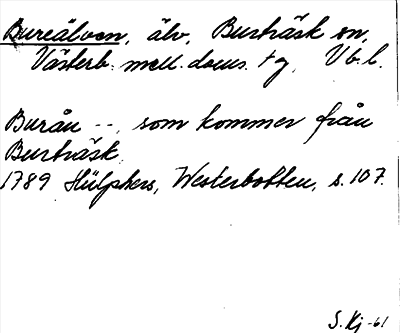 Bureälven, älv, Burträsk sn,
Västerb. mell. doms. tg, Vb. l.
Burån --, som kommer från
Burträsk.
1789 Hülphers, Westerbotten, s. 107.
S. Kj -61